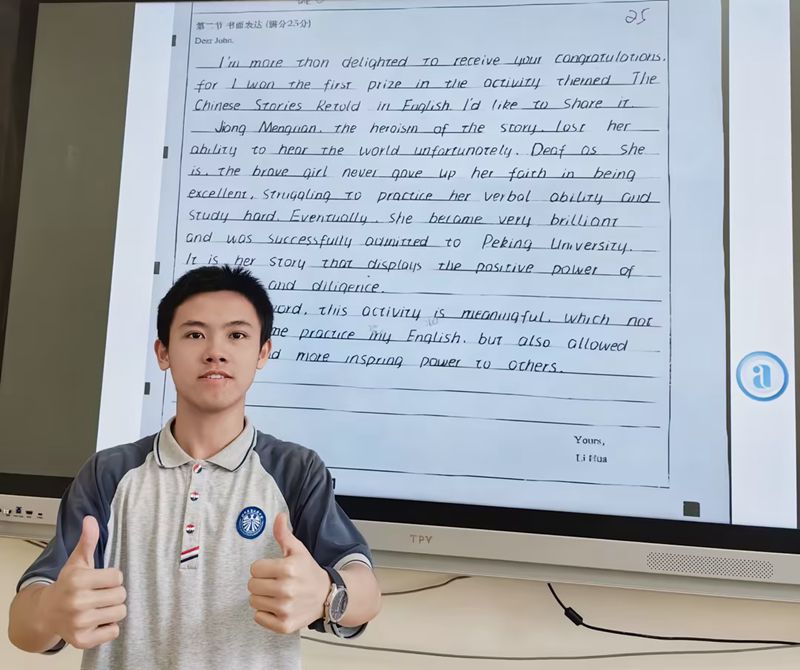 25
第二节 书面表达 (满分25分)
Dear John,
I'm more than delighted to receive your congratulations,
for I won the first prize in the activity themed The
Chinese Stories Retold in English. I'd like to share it.
Jiang Mengnan, the heroism of the story, lost her
ability to hear the world unfortunately. Deaf as she
is, the brave girl never gave up her faith in being
excellent, struggling to practice her verbal ability and
study hard. Eventually, she became very brilliant
and was successfully admitted to Peking University.
It is her story that displays the positive power of
and diligence.
word, this activity is meaningful, which not
me practice my English, but also allowed
more inspring power to others.
Yours,
Li Hua
a
TPV